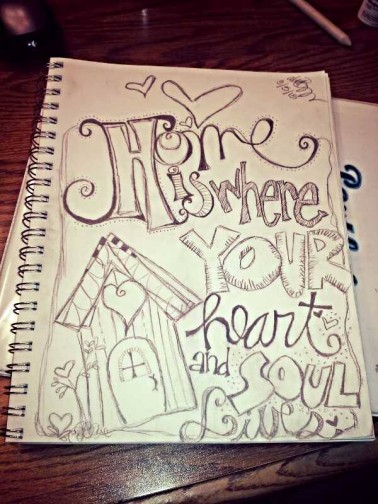 Home
is where
YOUR
heart
and SOUL
Lives